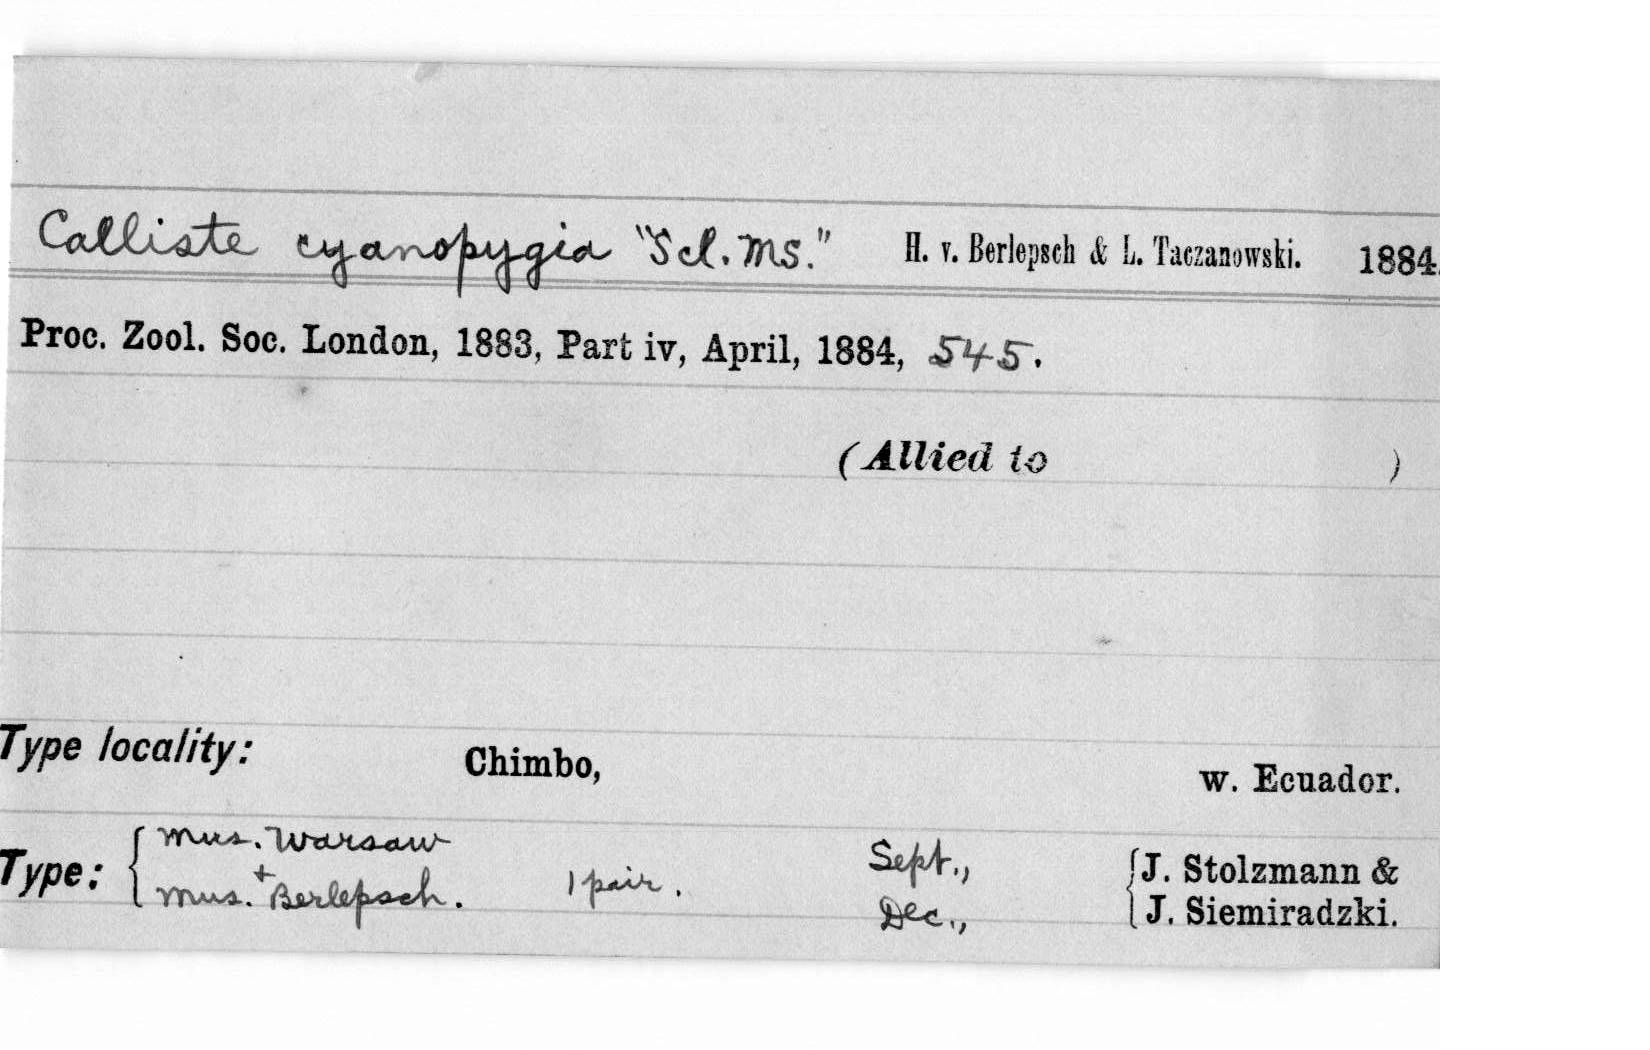 Calliste cyanopygia "Scl. MS." H. v. Berlepsch & L. Taczanowski. 1884.
Proc. Zool. Soc. London, 1883, Part iv, April, 1884, 545.
(Allied to )
Type locality: Chimbo, w. Ecuador.
Type: { Mus. Warsaw + Mus. Berlepsch. 1 pair. Sept., Dec., { J. Stolzmann & J. Siemiradzki.